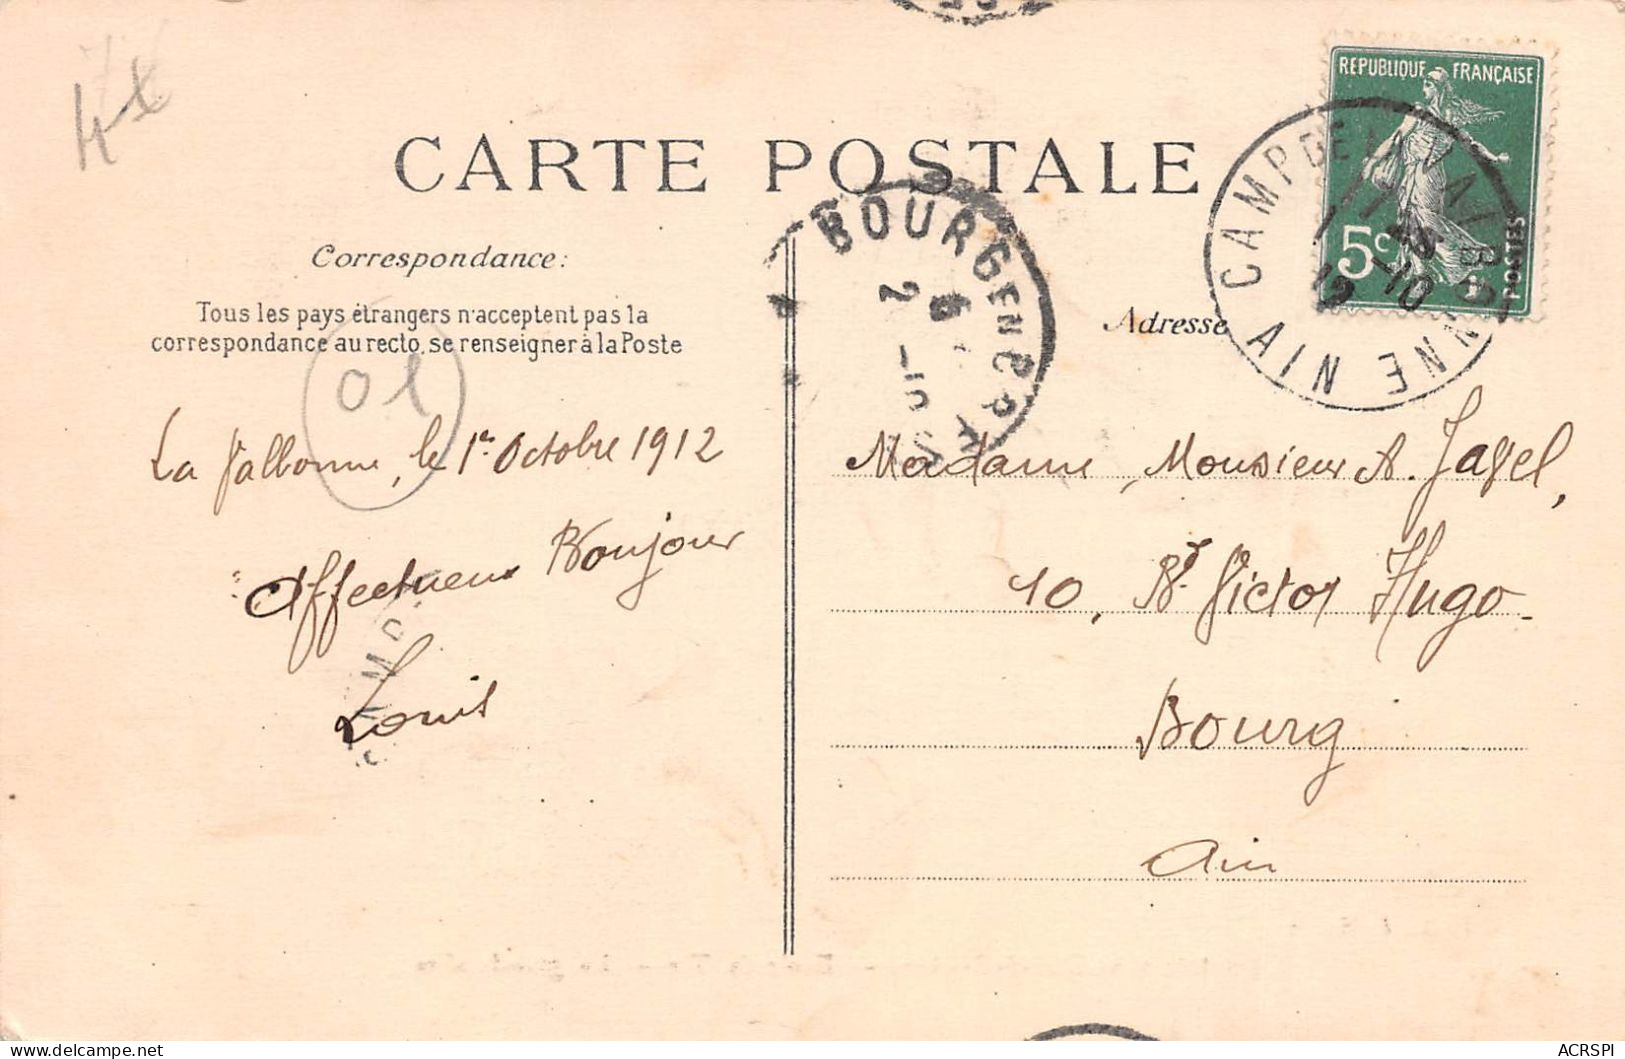 4 £
CARTE POSTALE
Correspondance:
Tous les pays étrangers n'acceptent pas la
correspondance au recto, se renseigner à la Poste
01
La Valbonne, le 1er Octobre 1912
Affectueux Bonjour
Louis
BOURG EN
2 -10
REPUBLIQUE FRANÇAISE
5c
POSTES
CAMP DE LA VALBONNE
AIN
1 -10
12
Adresse
Madame, Monsieur A.
10, Bd Victor Hugo
Bourg
Ain
ACRSPI